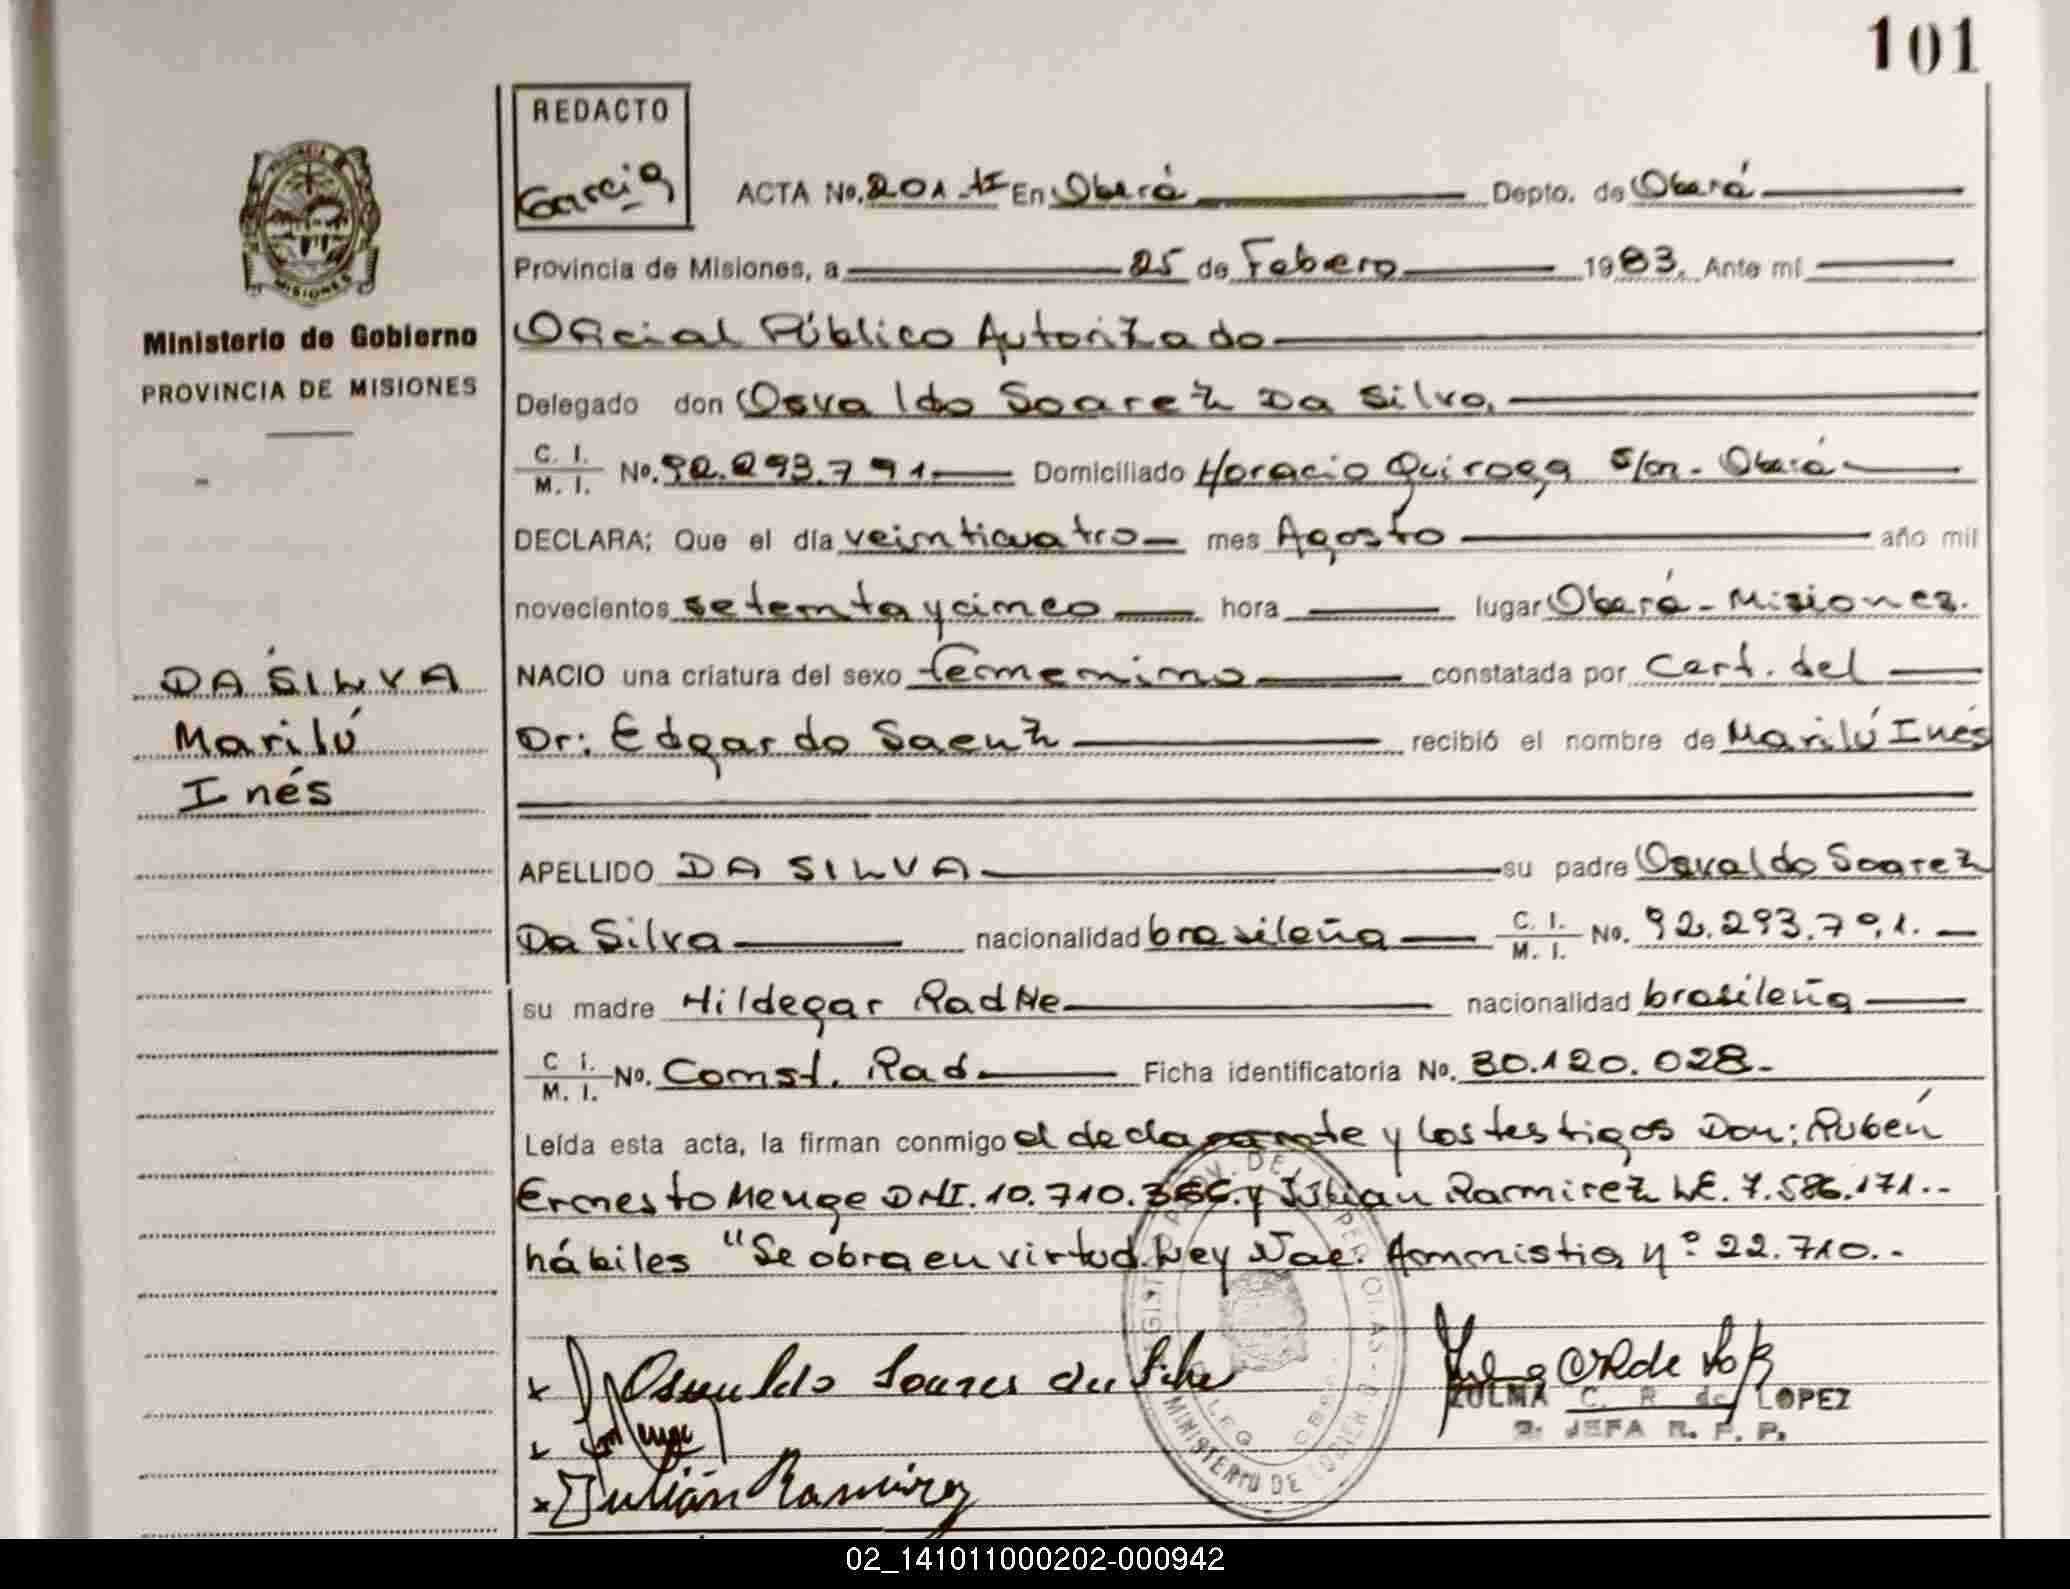 101
REDACTO
Garcia
MISIONES
Ministerio de Gobierno
PROVINCIA DE MISIONES
ACTA No. 201 En Oberá Depto. de Oberá
Provincia de Misiones, a 25 de Febero 1983. Ante mí
Oficial Público Autorizado
Delegado don Osvaldo Soarez Da Silva.
C. I. / M. I. No. 92.293.791 Domiciliado Horacio Quiroga s/n - Oberá
DECLARA; Que el día veinticuatro mes Agosto año mil
novecientos setenta y cinco hora lugar Oberá - Misiones.
DA SILVA
NACIO una criatura del sexo femenino constatada por Cert. del
Marilú
Dr: Edgardo Saenz recibió el nombre de Marilú Inés
Inés
APELLIDO DA SILVA su padre Osvaldo Soarez
Da Silva nacionalidad brasileña C. I. / M. I. No. 92.293.791.
su madre Hildegar Radke nacionalidad brasileña
C. I. / M. I. No. Const. Rad Ficha identificatoria No. 30.120.028.-
Leída esta acta, la firman conmigo el declarante y los testigos Don: Rubén
Ernesto Menge DNI. 10.710. y Julián Ramirez LE. 7.586.171.-
hábiles "Se obra en virtud Ley Nac. Ammnistia nº 22.710.-
Osvaldo Soares da Silva
ZULMA C. R. de LOPEZ
JEFA R. P. P.
Julián Ramírez
MINISTERIO DE
02_141011000202-000942